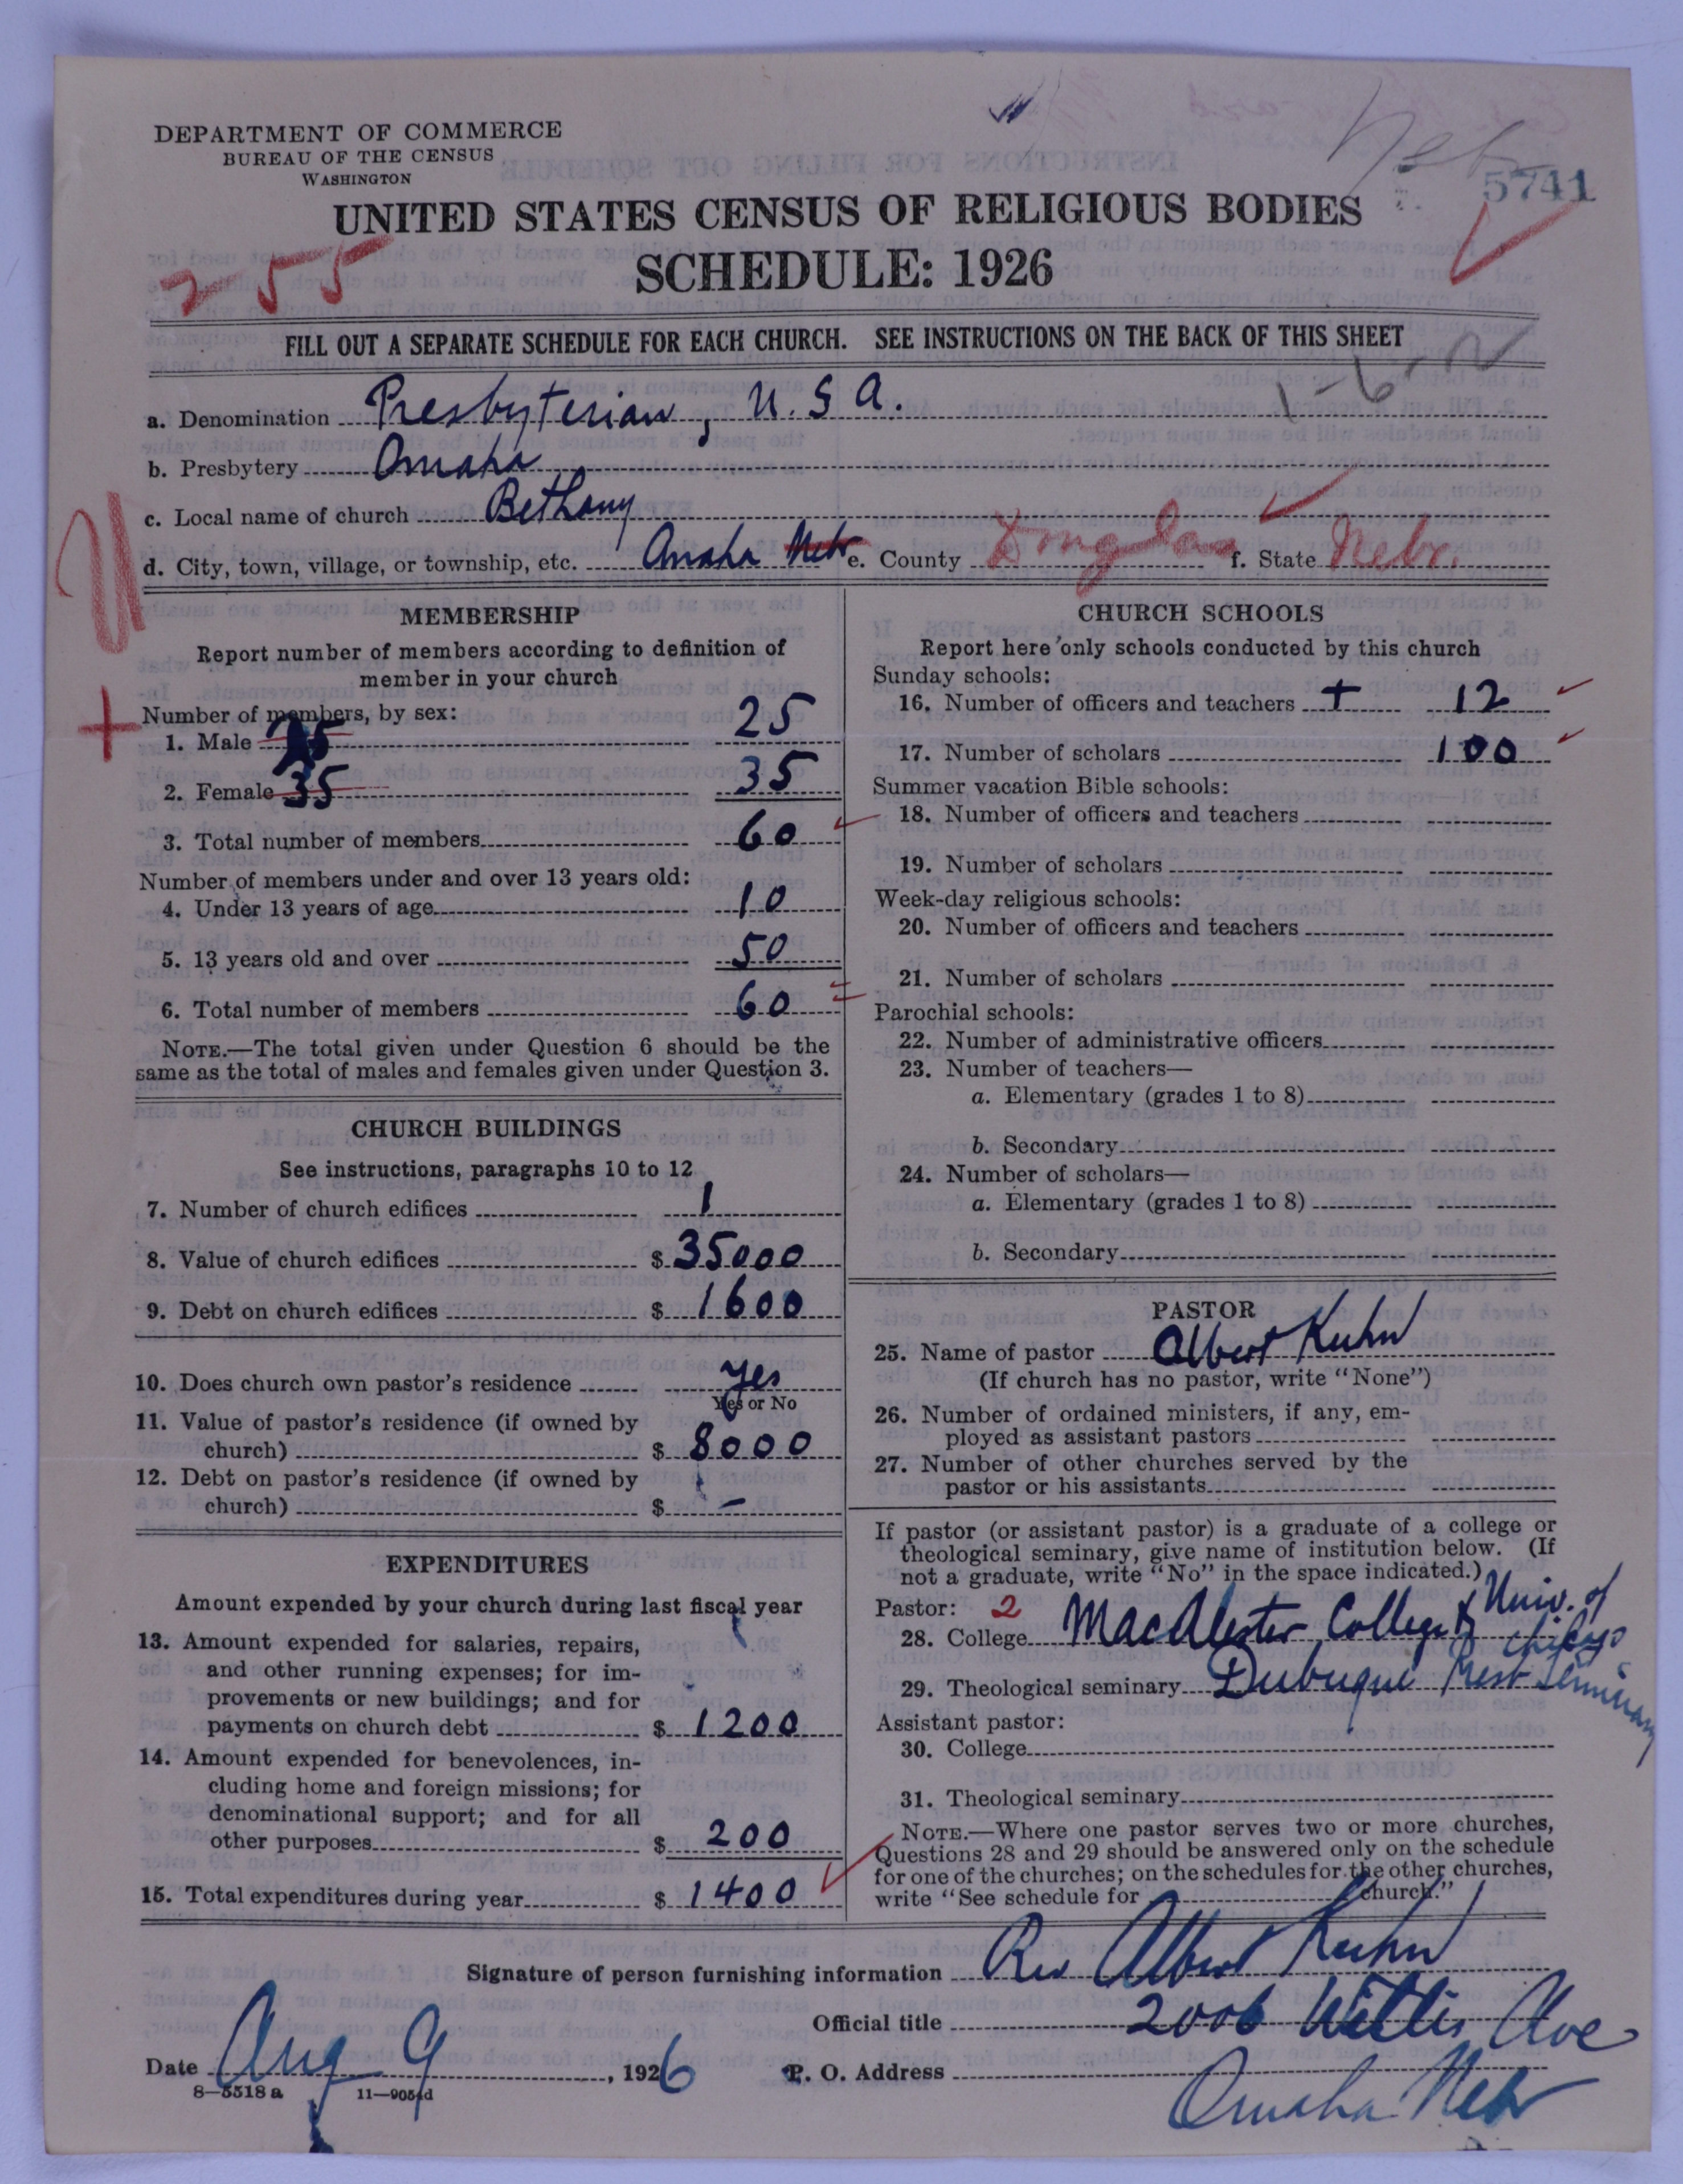 Nebr
5741
DEPARTMENT OF COMMERCE
BUREAU OF THE CENSUS
WASHINGTON
UNITED STATES CENSUS OF RELIGIOUS BODIES
SCHEDULE: 1926
255
FILL OUT A SEPARATE SCHEDULE FOR EACH CHURCH. SEE INSTRUCTIONS ON THE BACK OF THIS SHEET
1-6-2
a. Denomination Presbyterian, U.S.A.
b. Presbytery Omaha
c. Local name of church Bethany
d. City, town, village, or township, etc. Omaha Nebr e. County Douglas f. State Nebr.
U
MEMBERSHIP
Report number of members according to definition of
member in your church
Number of members, by sex:
1. Male 25
2. Female 35 35
3. Total number of members 60
Number of members under and over 13 years old:
4. Under 13 years of age 10
5. 13 years old and over 50
6. Total number of members 60
NOTE.—The total given under Question 6 should be the
same as the total of males and females given under Question 3.
CHURCH BUILDINGS
See instructions, paragraphs 10 to 12
7. Number of church edifices 1
8. Value of church edifices $ 35000
9. Debt on church edifices $ 1600
10. Does church own pastor's residence yes
Yes or No
11. Value of pastor's residence (if owned by
church) $ 8000
12. Debt on pastor's residence (if owned by
church) $ –
EXPENDITURES
Amount expended by your church during last fiscal year
13. Amount expended for salaries, repairs,
and other running expenses; for im-
provements or new buildings; and for
payments on church debt $ 1200
14. Amount expended for benevolences, in-
cluding home and foreign missions; for
denominational support; and for all
other purposes $ 200
15. Total expenditures during year $ 1400
CHURCH SCHOOLS
Report here only schools conducted by this church
Sunday schools:
16. Number of officers and teachers + 12
17. Number of scholars 100
Summer vacation Bible schools:
18. Number of officers and teachers
19. Number of scholars
Week-day religious schools:
20. Number of officers and teachers
21. Number of scholars
Parochial schools:
22. Number of administrative officers
23. Number of teachers—
a. Elementary (grades 1 to 8)
b. Secondary
24. Number of scholars—
a. Elementary (grades 1 to 8)
b. Secondary
PASTOR
25. Name of pastor Albert Kuhn
(If church has no pastor, write "None")
26. Number of ordained ministers, if any, em-
ployed as assistant pastors
27. Number of other churches served by the
pastor or his assistants
If pastor (or assistant pastor) is a graduate of a college or
theological seminary, give name of institution below. (If
not a graduate, write "No" in the space indicated.)
Pastor: 2
28. College MacAlester College & Univ. of Chicago
29. Theological seminary Dubuque Presb Seminary
Assistant pastor:
30. College
31. Theological seminary
NOTE.—Where one pastor serves two or more churches,
Questions 28 and 29 should be answered only on the schedule
for one of the churches; on the schedules for the other churches,
write "See schedule for church."
Signature of person furnishing information Rev Albert Kuhn
Official title 2006 Willis Ave
Date Aug 9, 1926 P. O. Address Omaha Nebr
8—5518 a 11—9054d